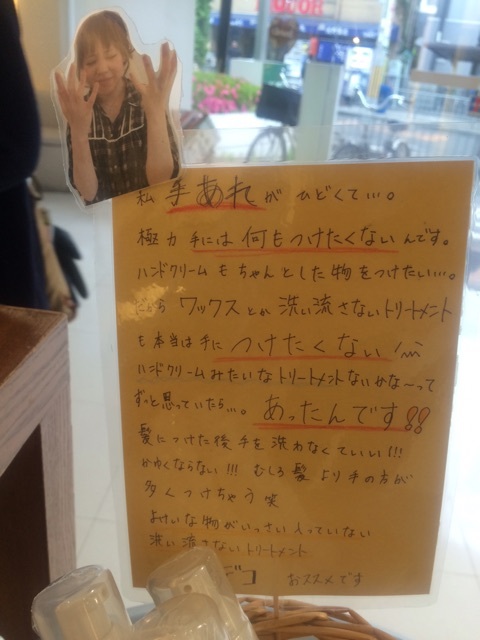 私 手あれが ひどくて…。
極力 手には 何もつけたくないんです。
ハンドクリームもちゃんとした物をつけたい…。
だから ワックスとか 洗い流さないトリートメント
も本当は手に つけたくない
ハンドクリームみたいなトリートメントないかな〜って
ずっと思っていたら…。あったんです!!
髪につけた後手を洗わなくていい!!!
かゆくならない!!! むしろ髪より手の方が
多くつけちゃう 笑
よけいな物がいっさい入っていない
洗い流さないトリートメント
デコ おススメです